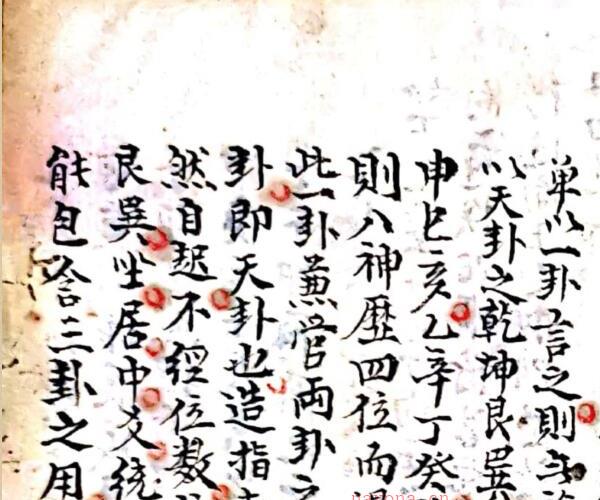 單以一卦言之則
以天卦之乾坤艮巽
申巳亥乙辛丁癸
則八神歷四位而
此一卦兼管兩卦之
卦即天卦也造指
然自起不經位數
艮巽坐居中爻統
能包含三卦之用